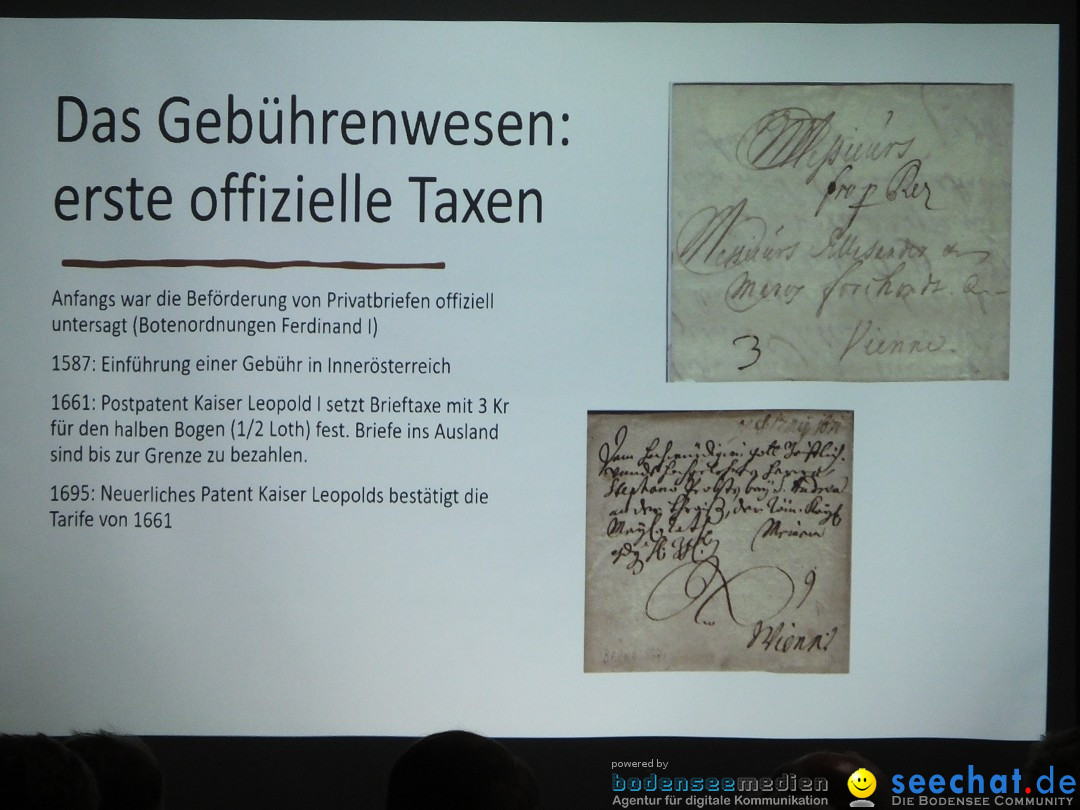 Das Gebührenwesen:
erste offizielle Taxen
Anfangs war die Beförderung von Privatbriefen offiziell
untersagt (Botenordnungen Ferdinand I)
1587: Einführung einer Gebühr in Innerösterreich
1661: Postpatent Kaiser Leopold I setzt Brieftaxe mit 3 Kr
für den halben Bogen (1/2 Loth) fest. Briefe ins Ausland
sind bis zur Grenze zu bezahlen.
1695: Neuerliches Patent Kaiser Leopolds bestätigt die
Tarife von 1661
Messieurs
Messieurs
3 Vienne.
9
Wienn:
powered by
bodenseemedien
Agentur für digitale Kommunikation
seechat.de
Die Bodensee Community